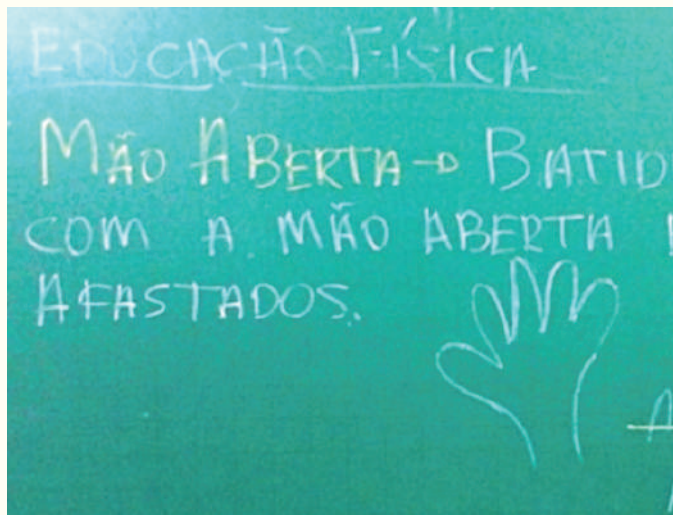 EDUCAÇÃO FÍSICA
MÃO ABERTA → BATID
COM A MÃO ABERTA
AFASTADOS.